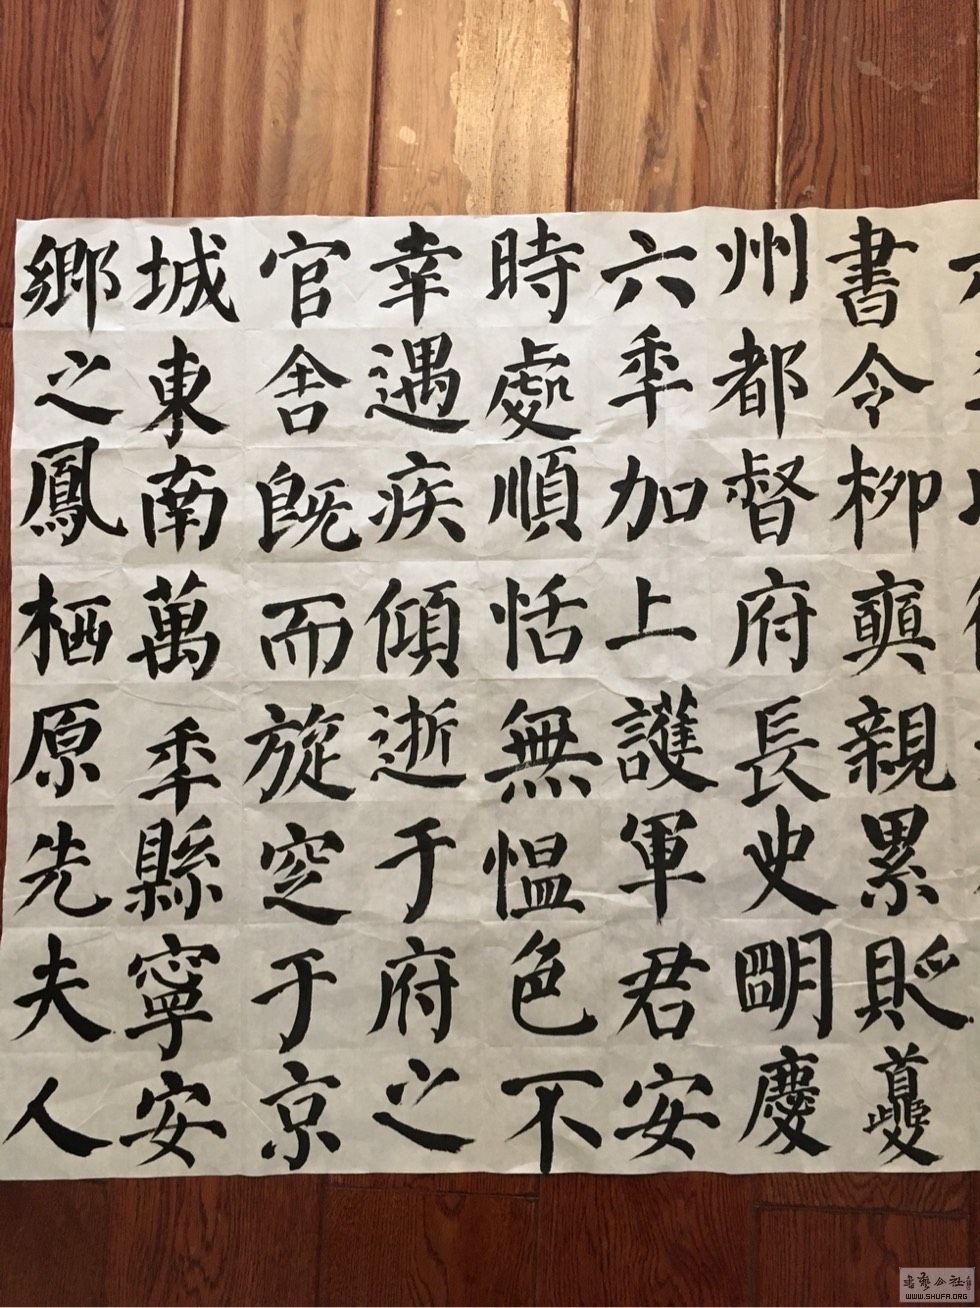 書令柳奭親累貶夔
州都督府長史明慶
六年加上護軍君安
時處順恬無慍色不
幸遇疾傾逝于府之
官舍既而旋窆于京
城東南萬年縣寧安
鄉之鳳栖原先夫人
WWW.SHUFA.ORG